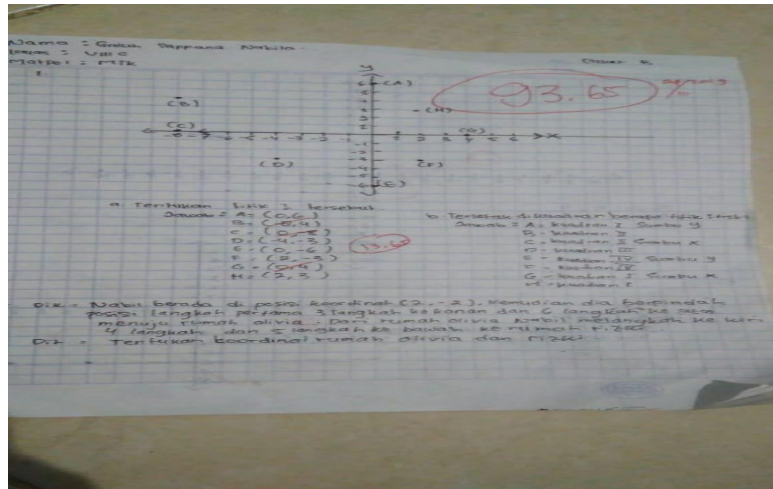 Nama : Nabila
Kelas : VIII C
Matpel : MTK
93.65
1.
y
(A)
(B)
(H)
(C)
(G)
x
(D)
(F)
(E)
a. Tentukan titik 2 tersebut
Jawab = A = (0,6)
B = (-8,4)
C = (0,-8)
D = (-4,-3)
E = (0,-6)
F = (2,-3)
G = (0,4)
H = (2,3)
13.65
b. Terletak di kuadran berapa titik 2 tsb
Jawab = A. kuadran I Sumbu y
B. kuadran II
C. kuadran II Sumbu x
D. kuadran III
E = kuadran IV Sumbu y
F = kuadran IV
G = kuadran I Sumbu x
H = kuadran I
Dik = Nabil berada di posisi koordinat (2,-2), kemudian dia berpindah
posisi langkah pertama 3 langkah ke kanan dan 6 langkah ke atas
menuju rumah olivia. Dari rumah olivia Nabil melangkah ke kiri
4 langkah dan 5 langkah ke bawah ke rumah rizki
Dit = Tentukan koordinat rumah olivia dan rizki